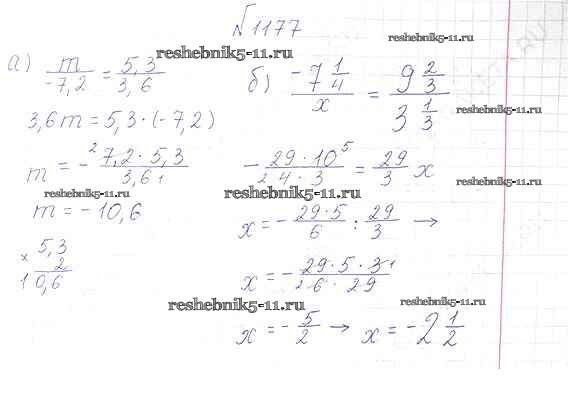 №1177
reshebnik5-11.ru
reshebnik5-11.ru
а) m/-7,2 = 5,3/3,6
б) -7 1/4 / x = 9 2/3 / 3 1/3
reshebnik5-11.ru
reshebnik5-11.ru
3,6m = 5,3 · (-7,2)
m = - 2 7,2 · 5,3 / 3,6 1
- 29 · 10 5 / 2 4 · 3 = 29/3 x
reshebnik5-11.ru
reshebnik5-11.ru
reshebnik5-11.ru
m = -10,6
x = - 29 · 5 / 6 : 29/3 →
× 5,3
2
10,6
x = - 29 · 5 · 3 1 / 2 6 · 29
reshebnik5-11.ru
reshebnik5-11.ru
x = - 5/2 → x = -2 1/2